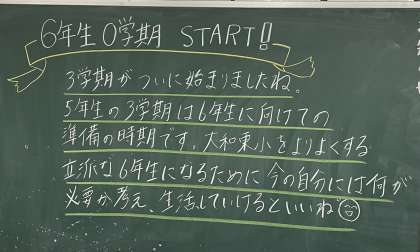 6年生0学期 START!!
3学期がついに始まりましたね。
5年生の3学期は6年生に向けての
準備の時期です。大和東小をよりよくする
立派な6年生になるために今の自分には何が
必要か考え、生活していけるといいね